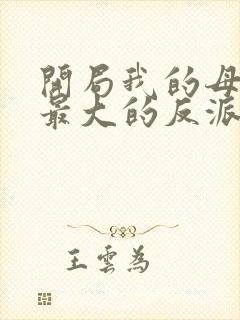 開局我的母
最大的反派
王雲為